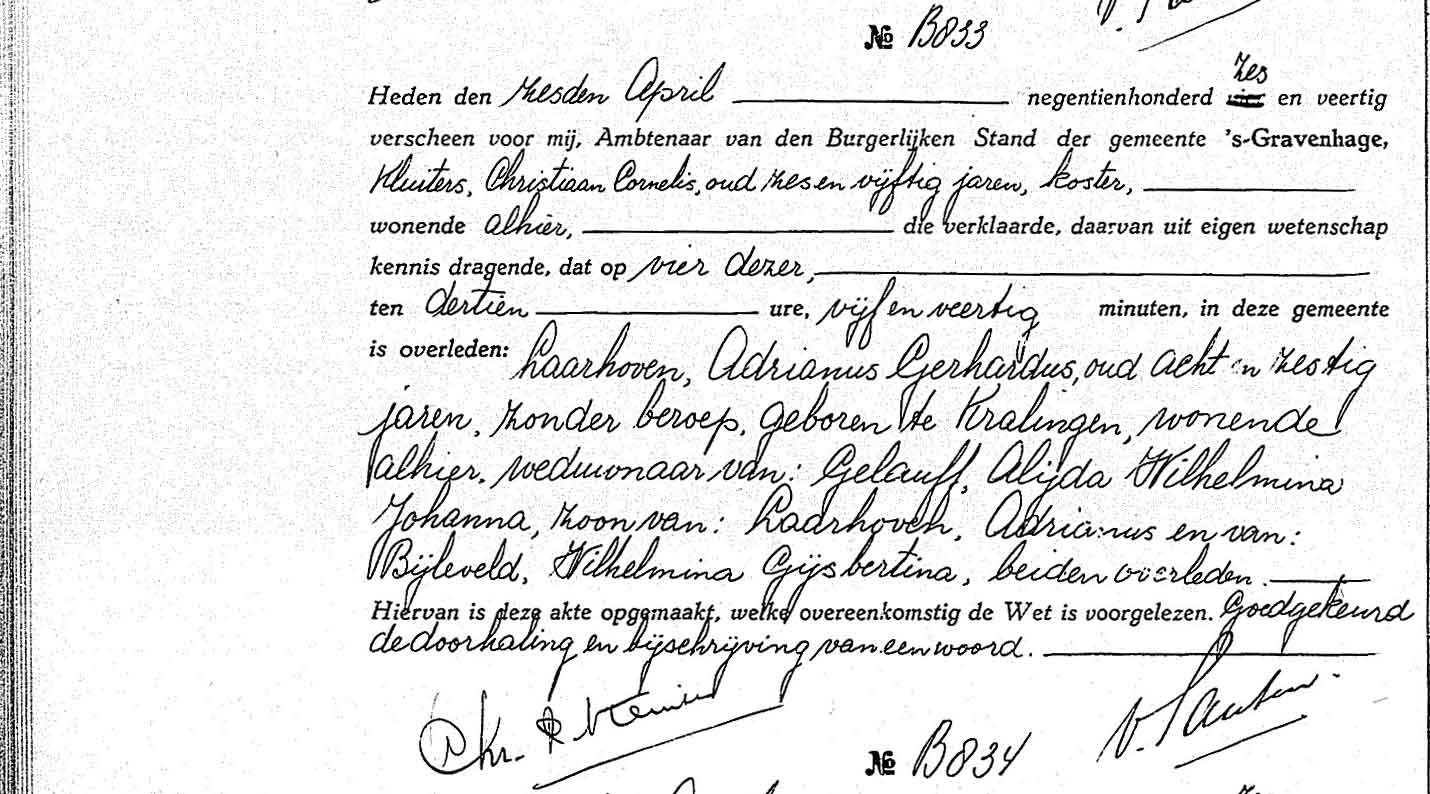 № B833
zes
Heden den zesden April negentienhonderd vier en veertig
verscheen voor mij, Ambtenaar van den Burgerlijken Stand der gemeente 's-Gravenhage,
Kluiters, Christiaan Cornelis, oud zes en vijftig jaren, koster,
wonende alhier, die verklaarde, daarvan uit eigen wetenschap
kennis dragende, dat op vier dezer,
ten dertien ure, vijf en veertig minuten, in deze gemeente
is overleden: Laarhoven, Adrianus Gerhardus, oud acht en zestig
jaren, zonder beroep, geboren te Kralingen, wonende
alhier, weduwnaar van: Gelauff, Alijda Wilhelmina
Johanna, zoon van: Laarhoven, Adrianus en van:
Bijleveld, Wilhelmina Gijsbertina, beiden overleden.
Hiervan is deze akte opgemaakt, welke overeenkomstig de Wet is voorgelezen. Goedgekeurd
de doorhaling en bijschrijving van een woord.
№ B834